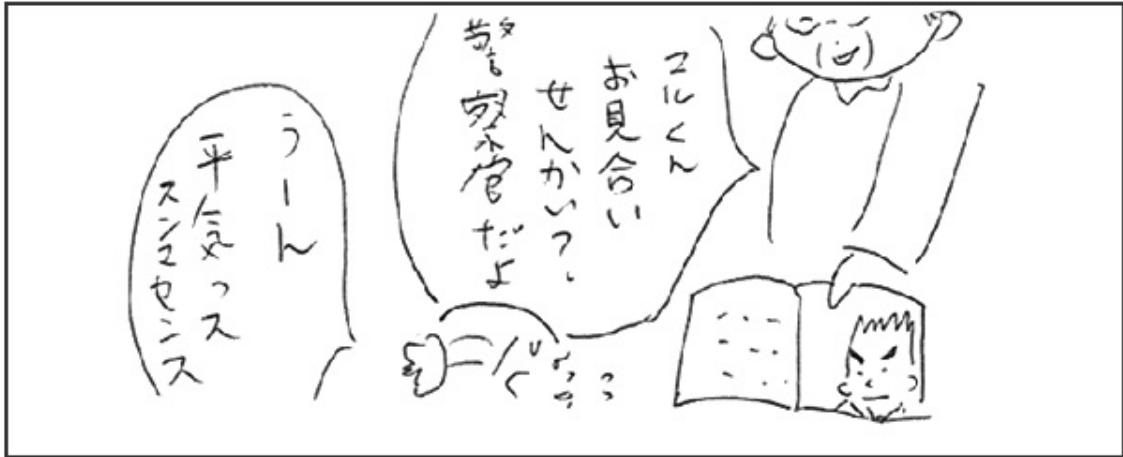 コルくん
お見合い
せんかい?
警察官だよ
うーん
平気っス
スンマセンス